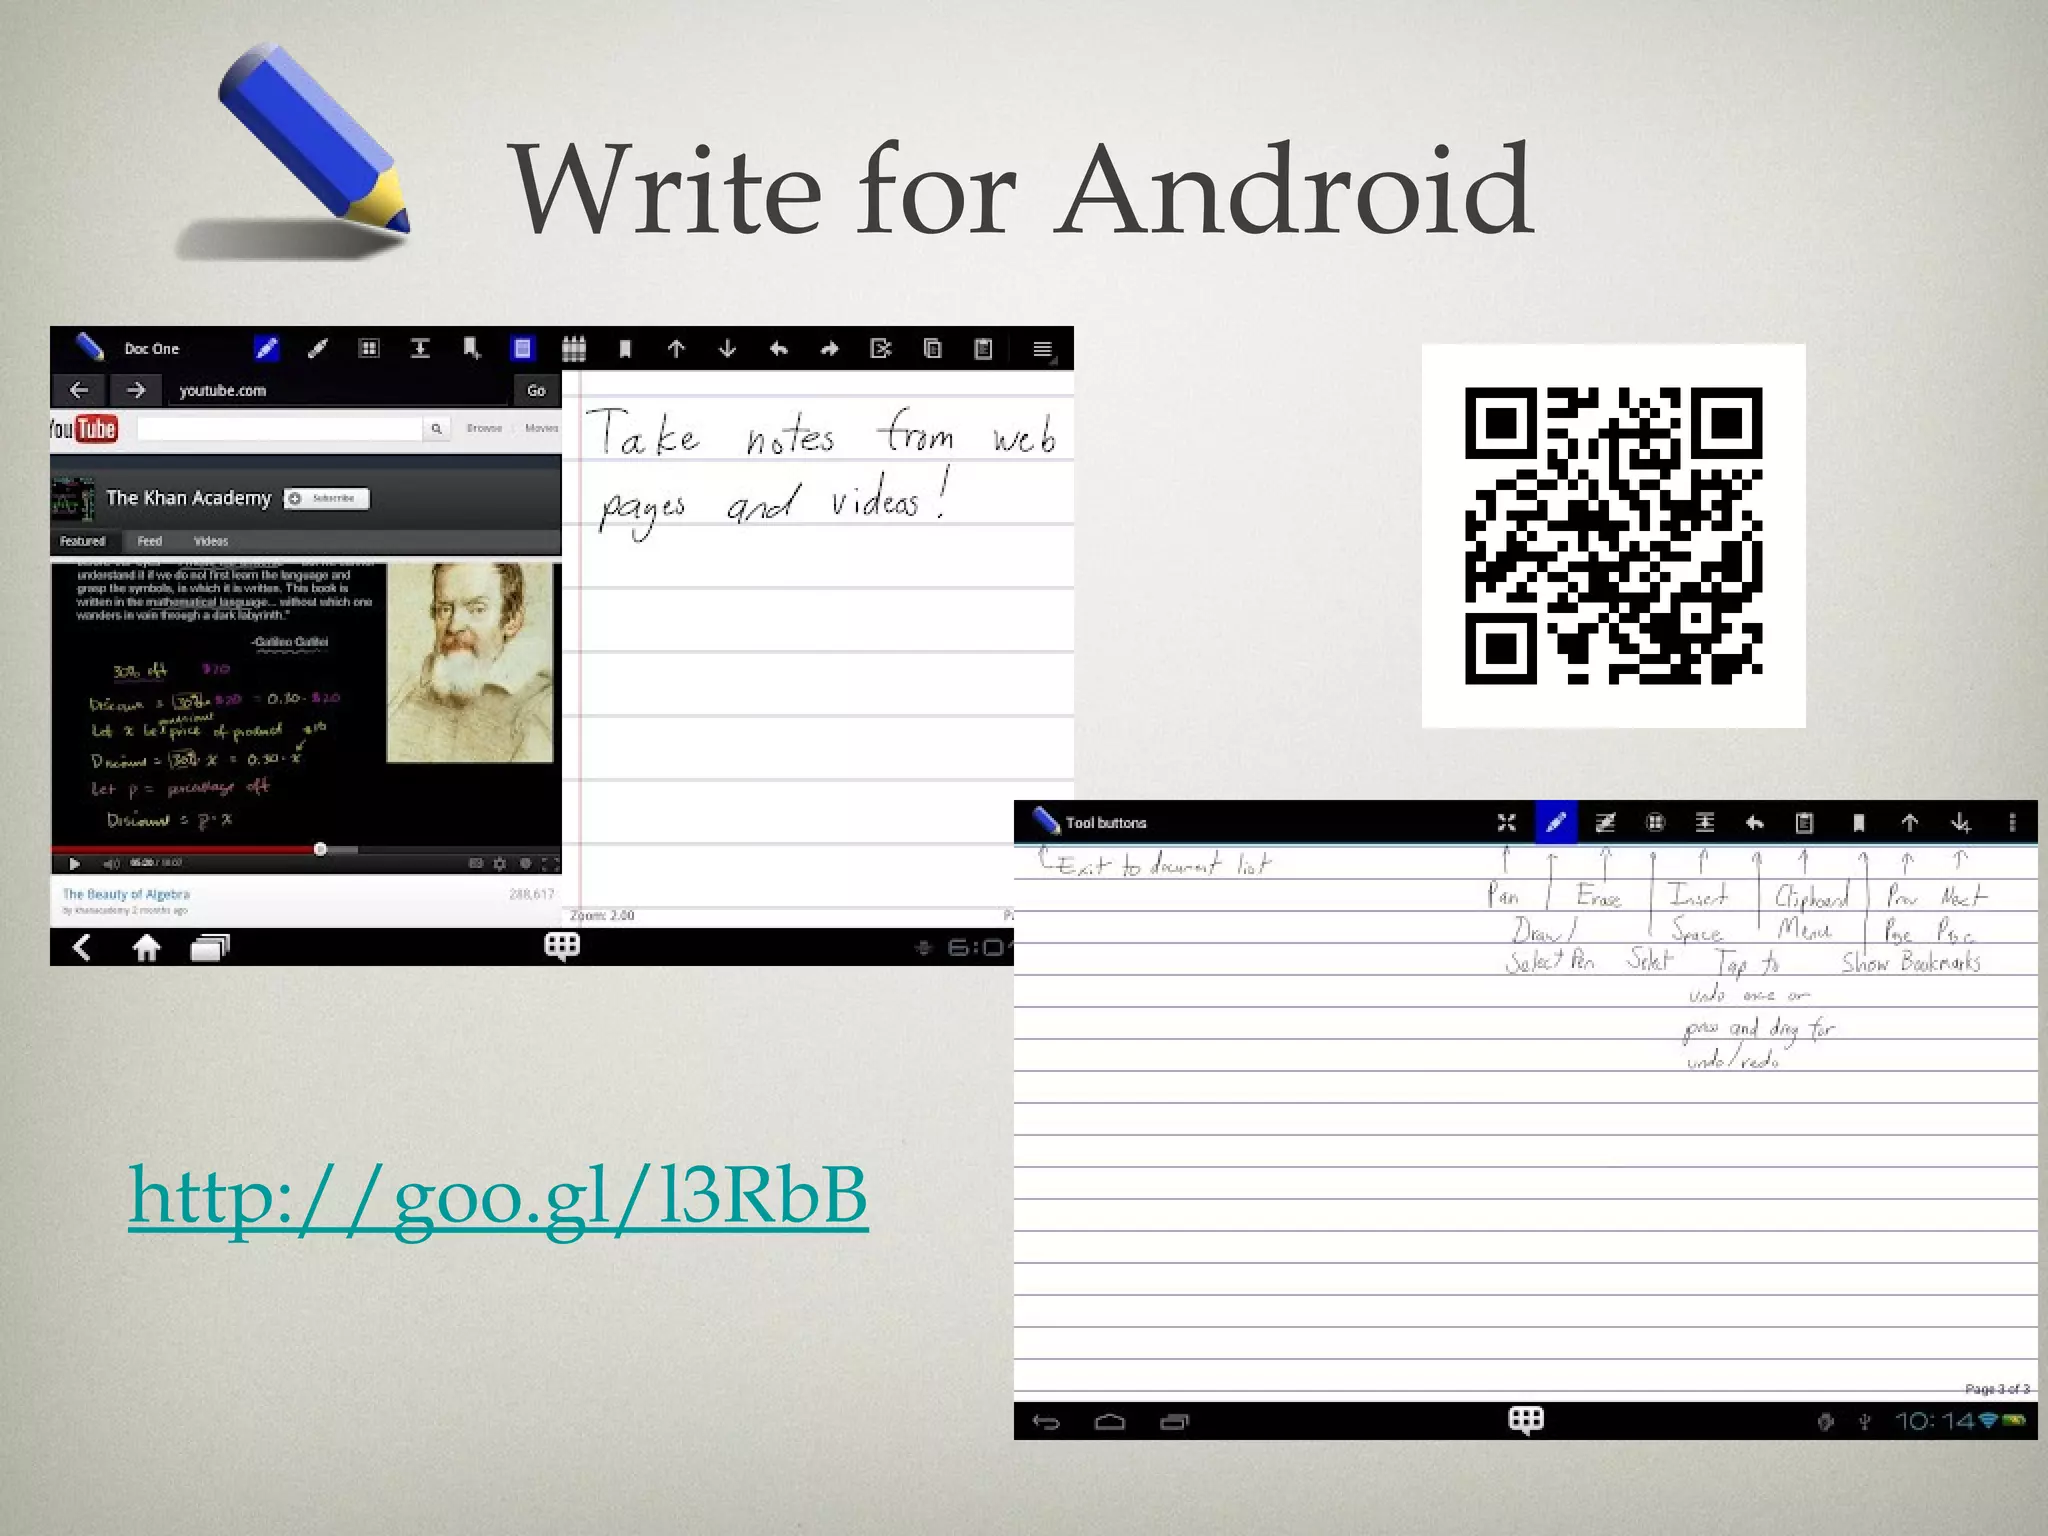 Write for Android
Doc One
youtube.com
Go
You Tube
Browse
Movies
The Khan Academy
Subscribe
Featured Feed Videos
understand it if we do not first learn the language and
grasp the symbols, in which it is written. This book is
written in the mathematical language... without which one
wanders in vain through a dark labyrinth."
-Galileo Galilei
30% off $20
Discount = 30% $20 = 0.30 · $20
Let x be price of product
Discount = 30% · x = 0.30 · x
Let p = percentage off
Discount = p · x
05:20
The Beauty of Algebra
288,617
by khanacademy 2 months ago
Take notes from web
pages and videos!
Zoom: 2.00
6:0
Tool buttons
Exit to document list
Pan Erase Insert Clipboard Prev Next
Draw/ Space Menu Page Page
Select Pen Select Tap to Show Bookmarks
undo once or
press and drag for
undo/redo
Page 3 of 3
10:14
http://goo.gl/l3RbB